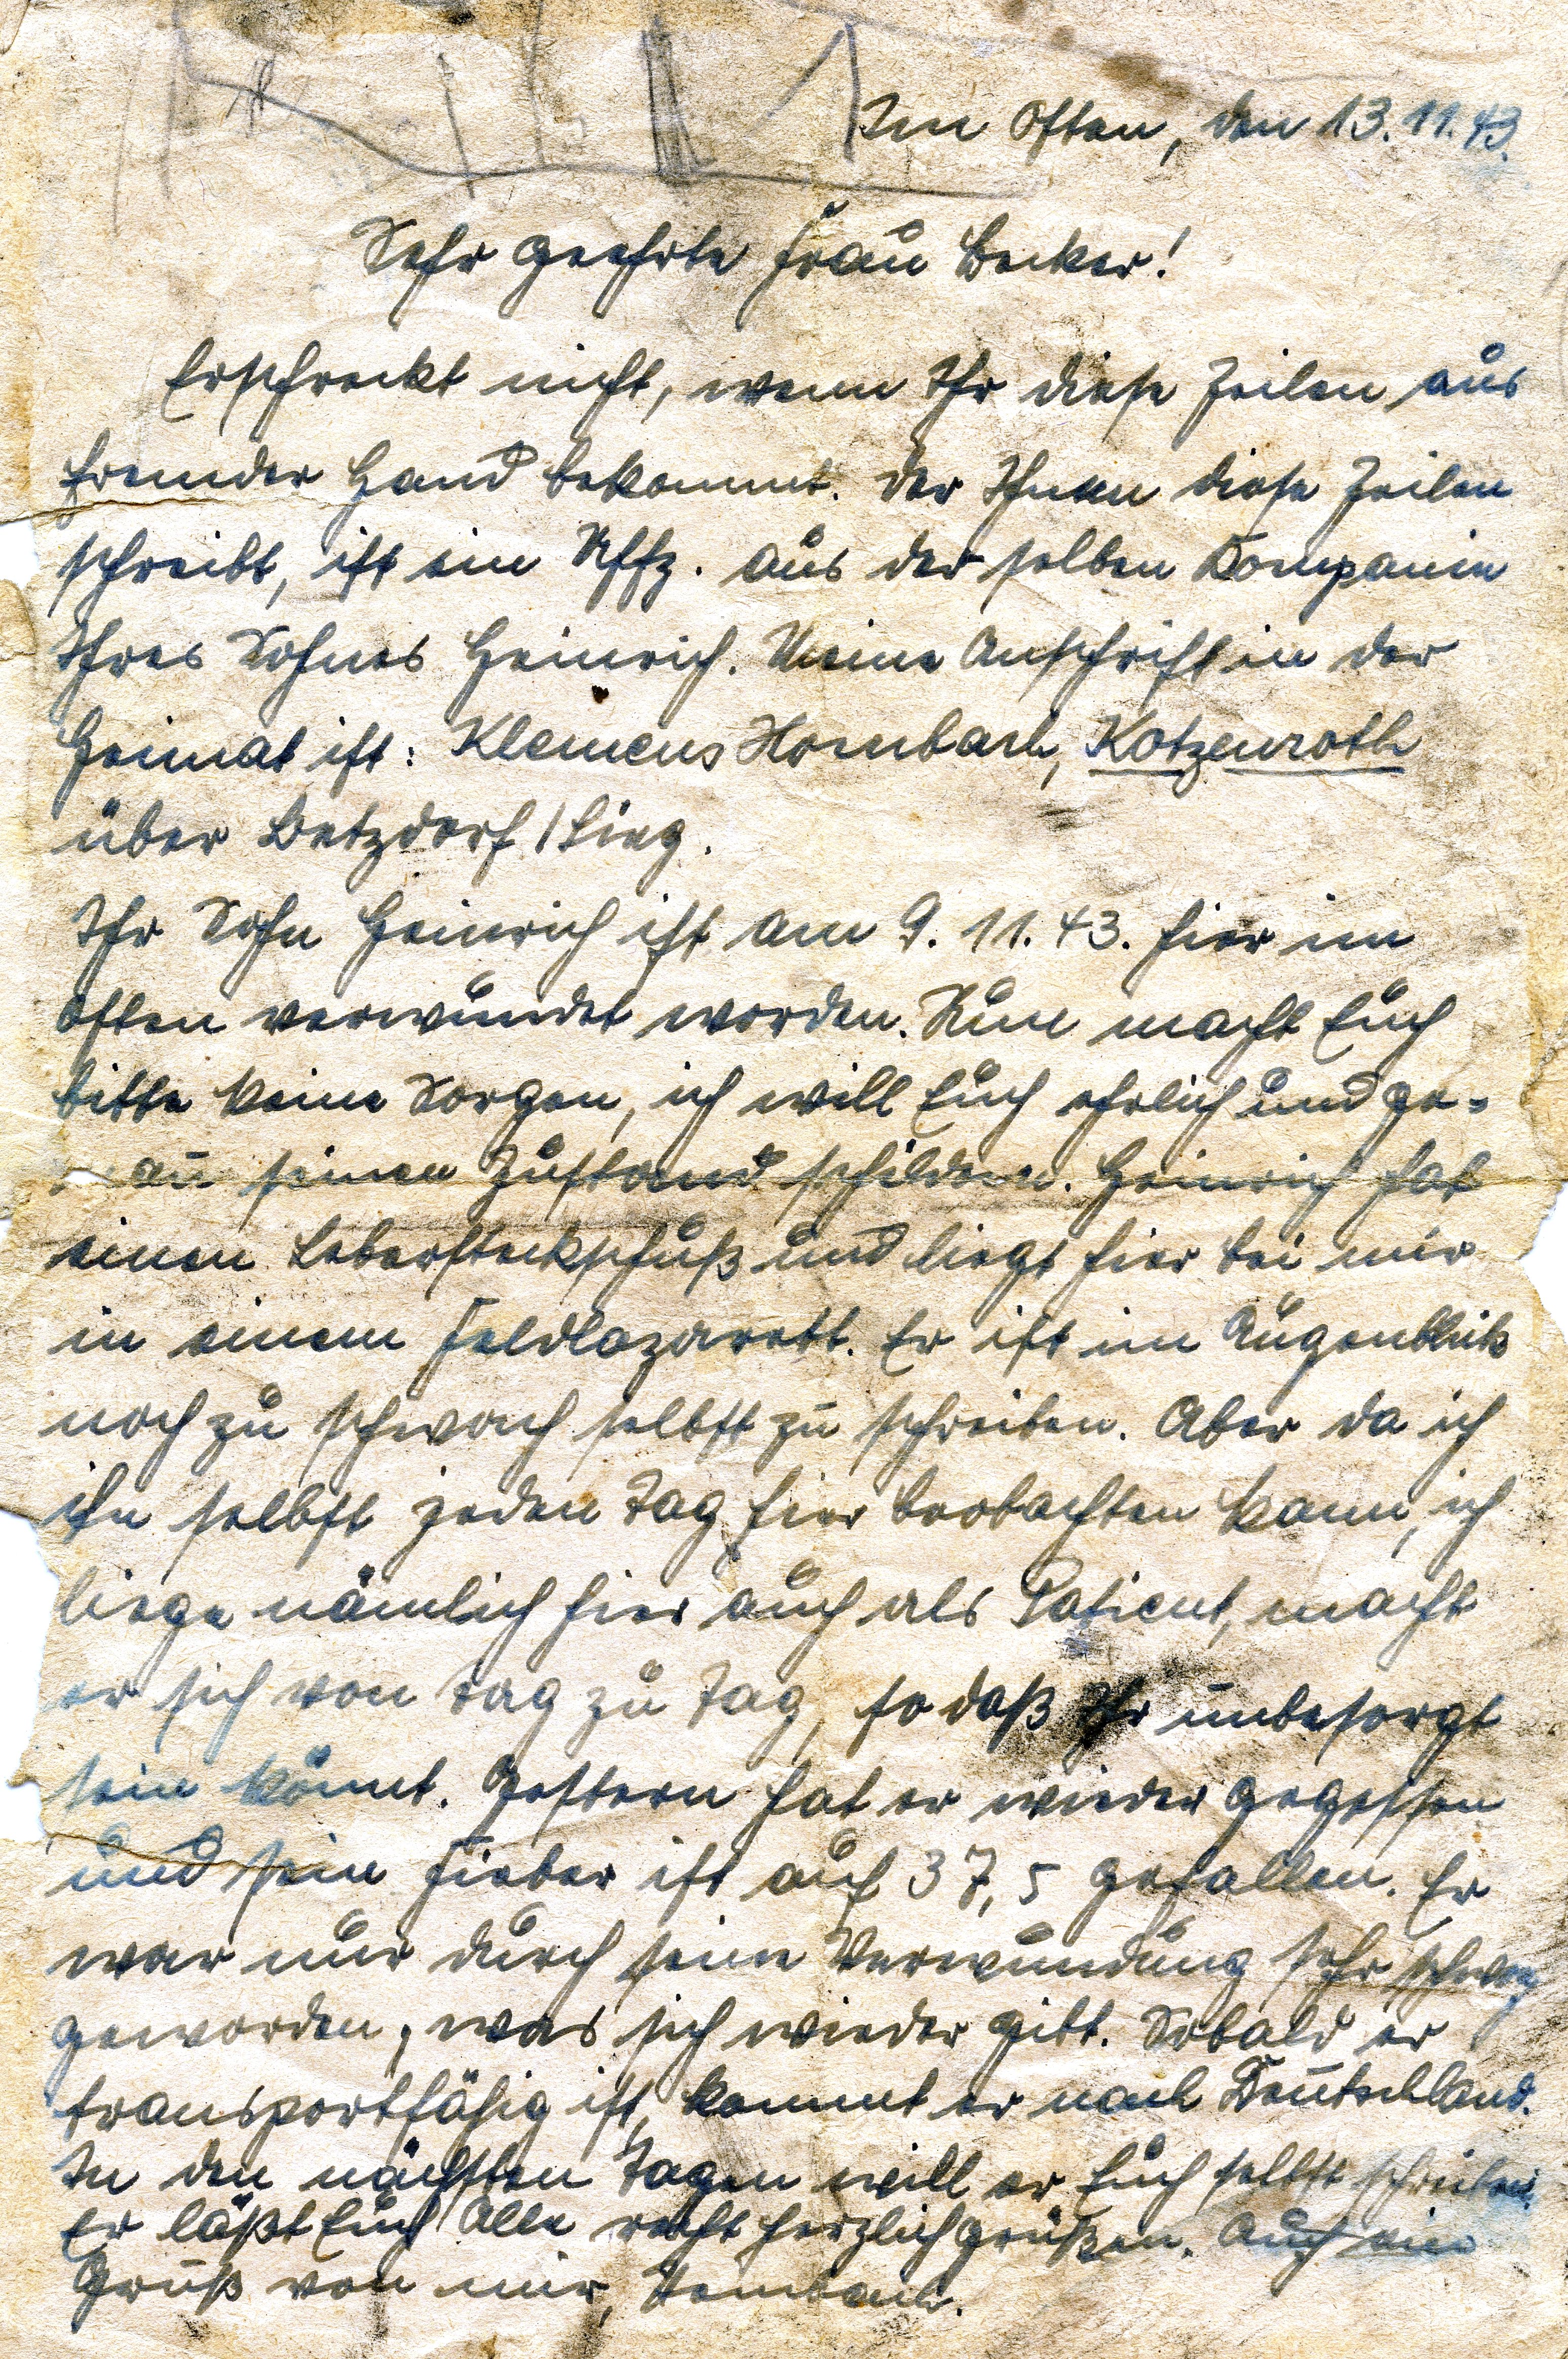 Im Osten, den 13.11.43.
Sehr geehrte Frau Becker!
Erschreckt nicht, wenn Ihr diese Zeilen aus
fremder Hand bekommt. Der Ihnen diese Zeilen
schreibt, ist ein Uffz. aus der selben Kompanie
Ihres Sohnes Heinrich. Meine Anschrift in der
Heimat ist: Klemens Hombach, Kotzenroth
über Betzdorf/Sieg.
Ihr Sohn Heinrich ist am 9.11.43. hier im
Osten verwundet worden. Nun macht Euch
bitte keine Sorgen, ich will Euch ehrlich und ge-
nau seinen Zustand schildern. Heinrich hat
einen Lebersteckschuß und liegt hier bei mir
in einem Feldlazarett. Er ist im Augenblick
noch zu schwach selbst zu schreiben. Aber da ich
ihn selbst jeden Tag hier beobachten kann, ich
liege nämlich hier auch als Patient, macht
er sich von Tag zu Tag, so daß Ihr unbesorgt
sein könnt. Gestern hat er wieder gegessen
und sein Fieber ist auf 37,5 gefallen. Er
war nur durch seine Verwundung sehr schwach
geworden, was sich wieder gibt. Sobald er
transportfähig ist, kommt er nach Deutschland.
In den nächsten Tagen will er Euch selbst schreiben.
Er läßt Euch Alle recht herzlich grüßen. Auch ein
Gruß von mir, Hombach.